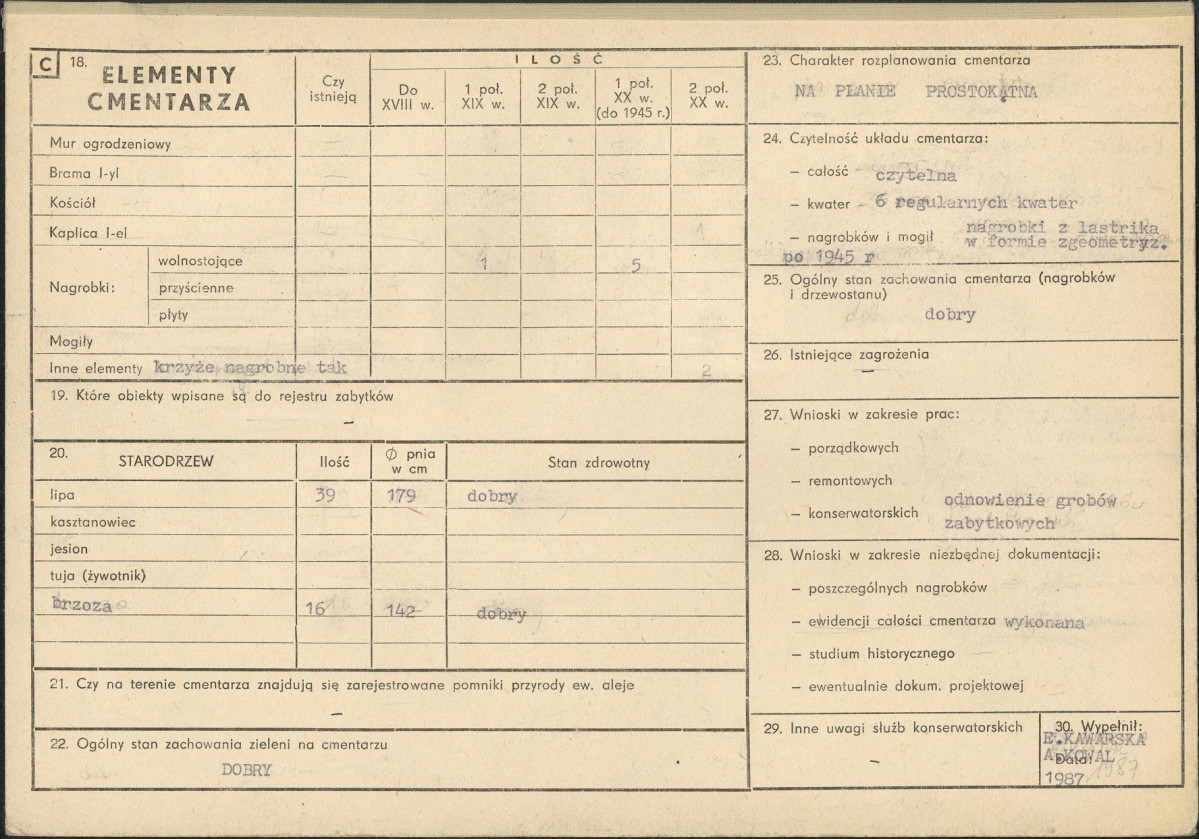 C 18. ELEMENTY CMENTARZA
Czy istnieją
ILOŚĆ
Do XVIII w.
1 poł. XIX w.
2 poł. XIX w.
1 poł. XX w. (do 1945 r.)
2 poł. XX w.
Mur ogrodzeniowy
Brama I-yl
Kościół
Kaplica I-el 1
Nagrobki:
wolnostojące 1 5
przyścienne
płyty
Mogiły
Inne elementy krzyże nagrobne tak 2
19. Które obiekty wpisane są do rejestru zabytków
–
20. STARODRZEW Ilość Ø pnia w cm Stan zdrowotny
lipa 39 179 dobry
kasztanowiec
jesion
tuja (żywotnik)
brzoza 16 142 dobry
21. Czy na terenie cmentarza znajdują się zarejestrowane pomniki przyrody ew. aleje
–
22. Ogólny stan zachowania zieleni na cmentarzu
DOBRY
23. Charakter rozplanowania cmentarza
NA PLANIE PROSTOKĄTNA
24. Czytelność układu cmentarza:
– całość czytelna
– kwater 6 regularnych kwater
– nagrobków i mogił nagrobki z lastrika
w formie zgeometryz.
po 1945 r
25. Ogólny stan zachowania cmentarza (nagrobków
i drzewostanu)
dobry
26. Istniejące zagrożenia
–
27. Wnioski w zakresie prac:
– porządkowych
– remontowych
– konserwatorskich odnowienie grobów
zabytkowych
28. Wnioski w zakresie niezbędnej dokumentacji:
– poszczególnych nagrobków
– ewidencji całości cmentarza wykonana
– studium historycznego
– ewentualnie dokum. projektowej
29. Inne uwagi służb konserwatorskich
–
30. Wypełnił:
E.KAWARSKA
A.KOWAL
Data:
1987 1987